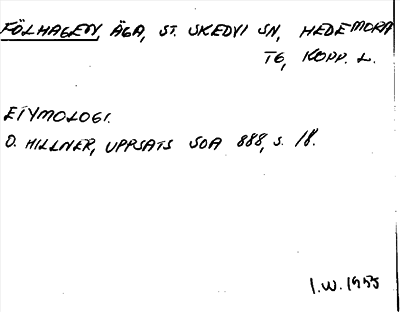 FÖLHAGEN, ÄGA, ST. SKEDVI SN, HEDEMORA
TG, KOPP. L.
ETYMOLOGI.
O. HILLNER, UPPSATS SOA 888, S. 18.
I.W. 1955